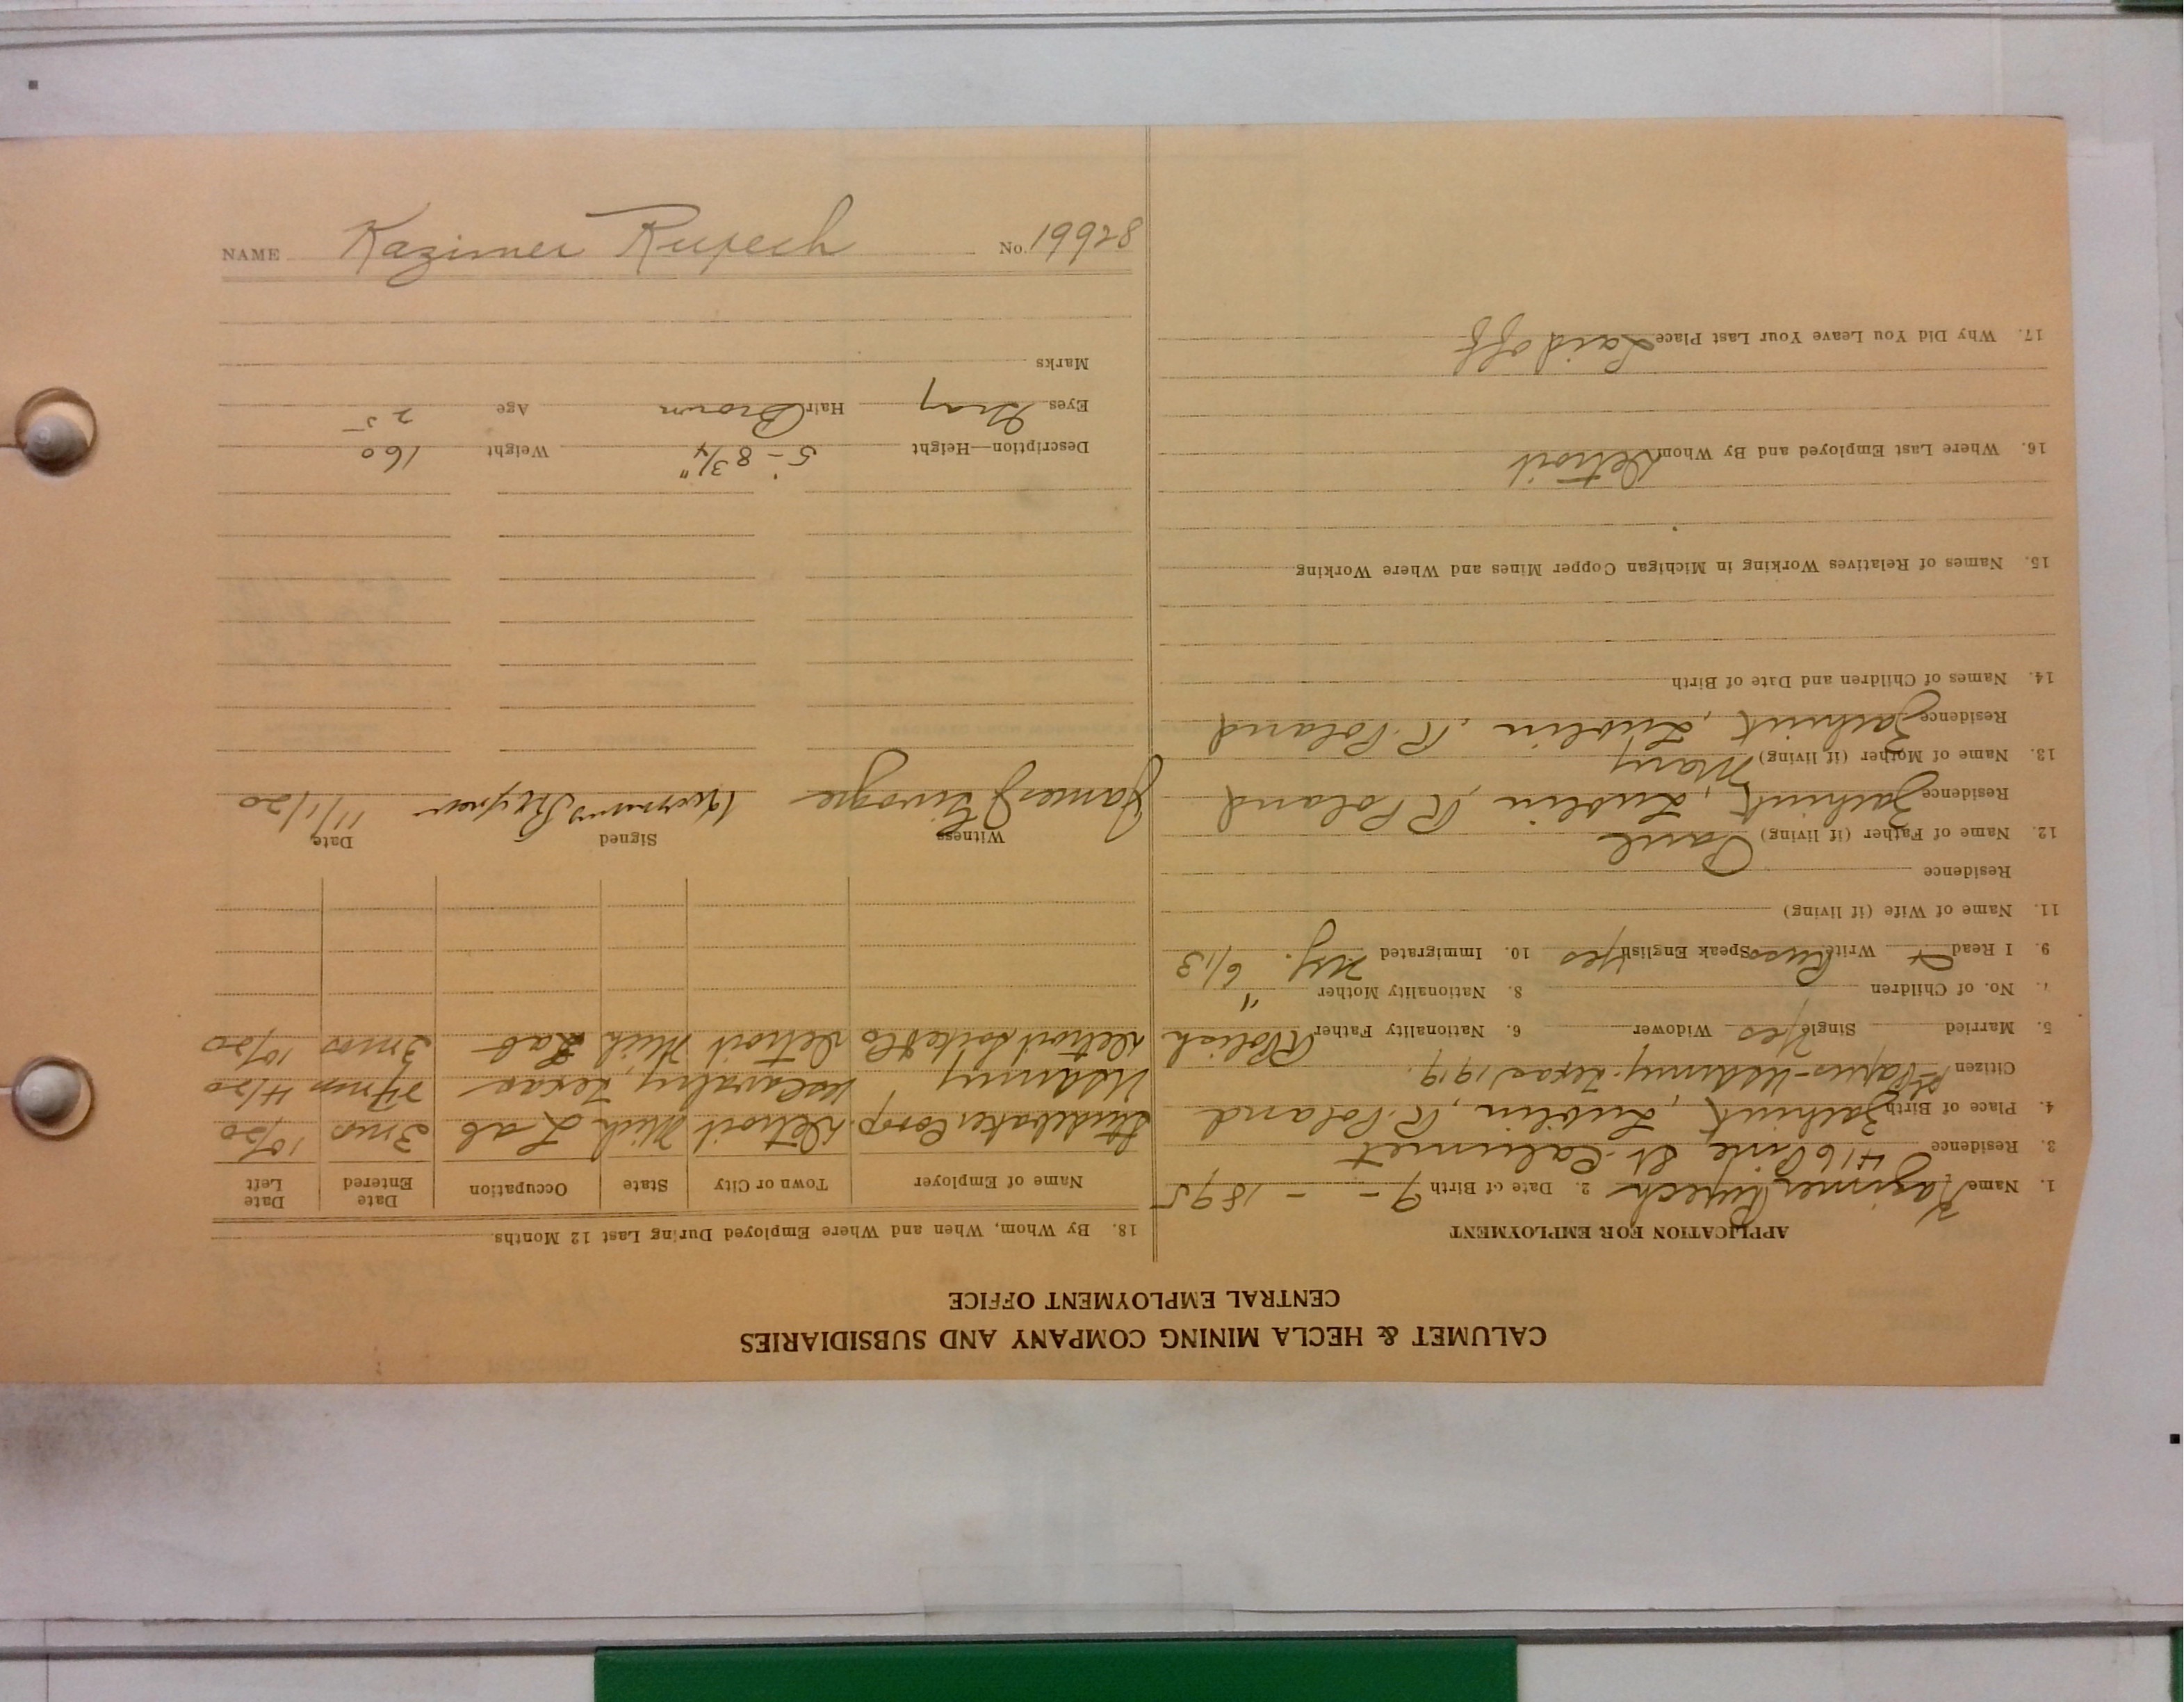 CALUMET & HECLA MINING COMPANY AND SUBSIDIARIES
CENTRAL EMPLOYMENT OFFICE
APPLICATION FOR EMPLOYMENT
1. Name Kazimer Rupech 2. Date of Birth 9 - - 1895
3. Residence 416 Pine St. Calumet
4. Place of Birth Lublin, R. Poland
Citizen 1st Papers - US Army. Texas 1919.
5. Married Single Yes Widower 6. Nationality Father R Polish
7. No. of Children 8. Nationality Mother "
9. I Read Write Russ Speak English Yes 10. Immigrated N.Y. 6/13
11. Name of Wife (if living)
Residence
12. Name of Father (if living) Paul
Residence Lublin, R Poland
13. Name of Mother (if living) Mary
Residence Lublin, R. Poland
14. Names of Children and Date of Birth
15. Names of Relatives Working in Michigan Copper Mines and Where Working
16. Where Last Employed and By Whom Detroit
17. Why Did You Leave Your Last Place Laid off
18. By Whom, When and Where Employed During Last 12 Months.
Name of Employer Town or City State Occupation Date Entered Date Left
Studebaker Corp. Detroit Mich Lab 3 mos 10/20
US Army US Cavalry, Texas mos 4/20
Detroit Co Detroit Mich Lab 3 mos 10/20
Witness Signed Date
James 11/1/20
Description—Height 5'-8 3/4" Weight 160
Eyes Gray Hair Brown Age 25
Marks
NAME Kazimer Rupech No. 19928